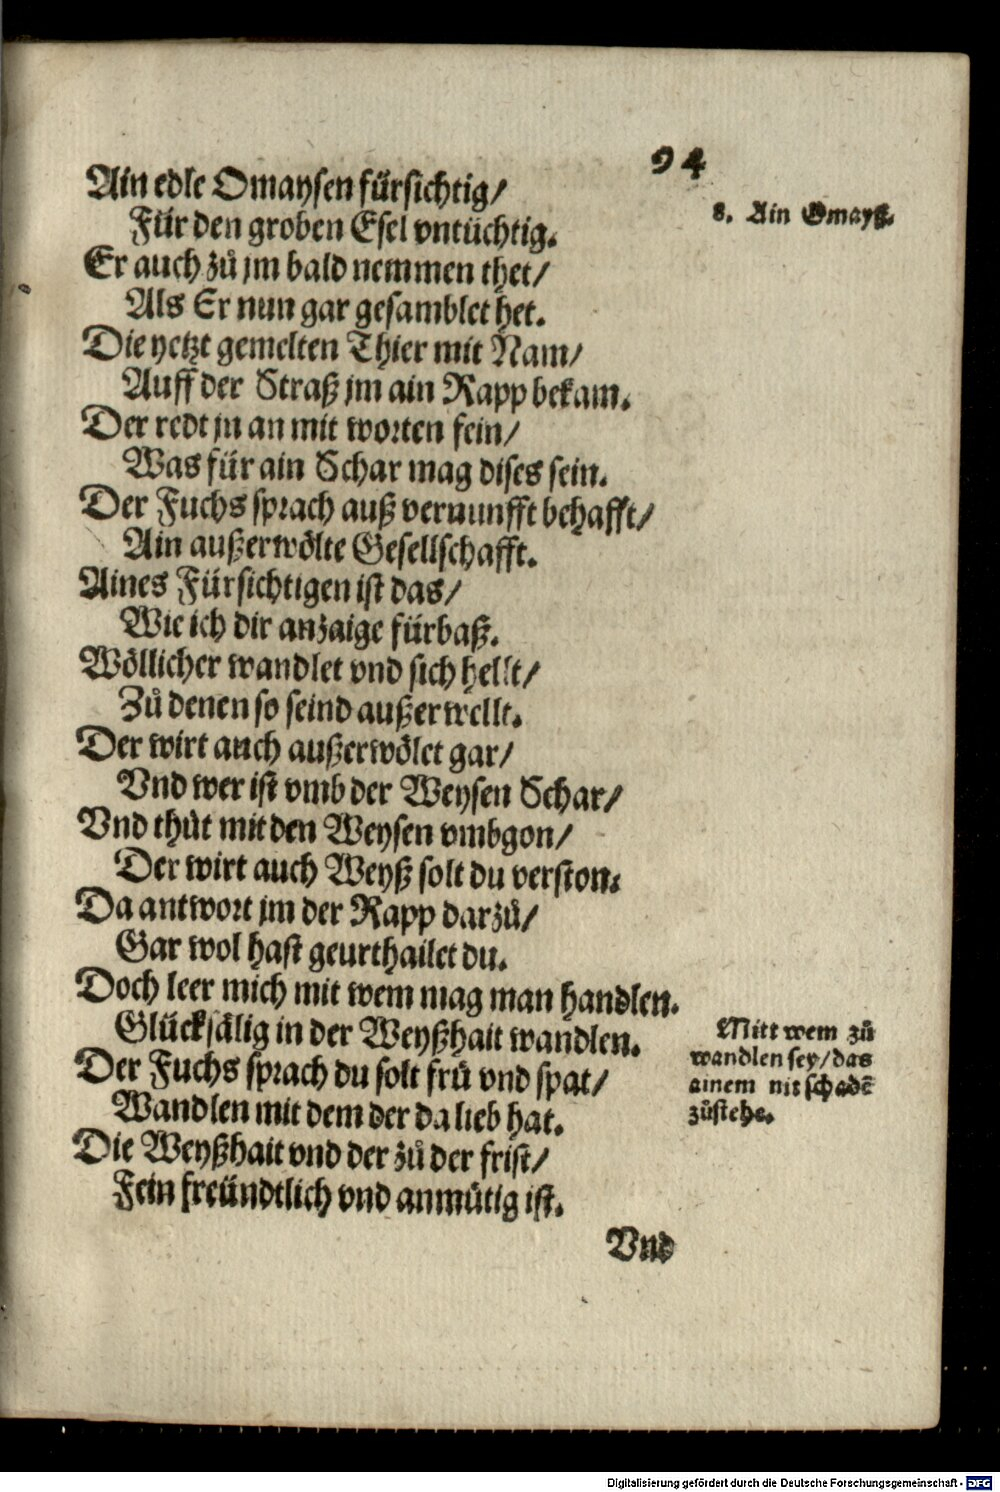 94
Ain edle Omaysen fürsichtig/
8. Ain Omayß.
Für den groben Esel vntüchtig.
Er auch zů jm bald nemmen thet/
Als Er nun gar gesamblet het.
Die yetzt gemelten Thier mit Nam/
Auff der Straß jm ain Rapp bekam.
Der redt jn an mit worten fein/
Was für ain Schar mag dises sein.
Der Fuchs sprach auß vernunfft behafft/
Ain außerwölte Gesellschafft.
Aines Fürsichtigen ist das/
Wie ich dir anzaige fürbaß.
Wöllicher wandlet vnd sich hellt/
Zů denen so seind außerwellt.
Der wirt auch außerwölet gar/
Vnd wer ist vmb der Weysen Schar/
Vnd thůt mit den Weysen vmbgon/
Der wirt auch Weyß solt du verston.
Da antwort jm der Rapp darzů/
Gar wol hast geurthailet du.
Doch leer mich mit wem mag man handlen.
Glücksälig in der Weyßhait wandlen.
Mitt wem zů
wandlen sey/das
ainem nit schadē
zůstehe.
Der Fuchs sprach du solt frů vnd spat/
Wandlen mit dem der da lieb hat.
Die Weyßhait vnd der zů der frist/
Fein freündtlich vnd anmůtig ist.
Vnd
Digitalisierung gefördert durch die Deutsche Forschungsgemeinschaft - DFG